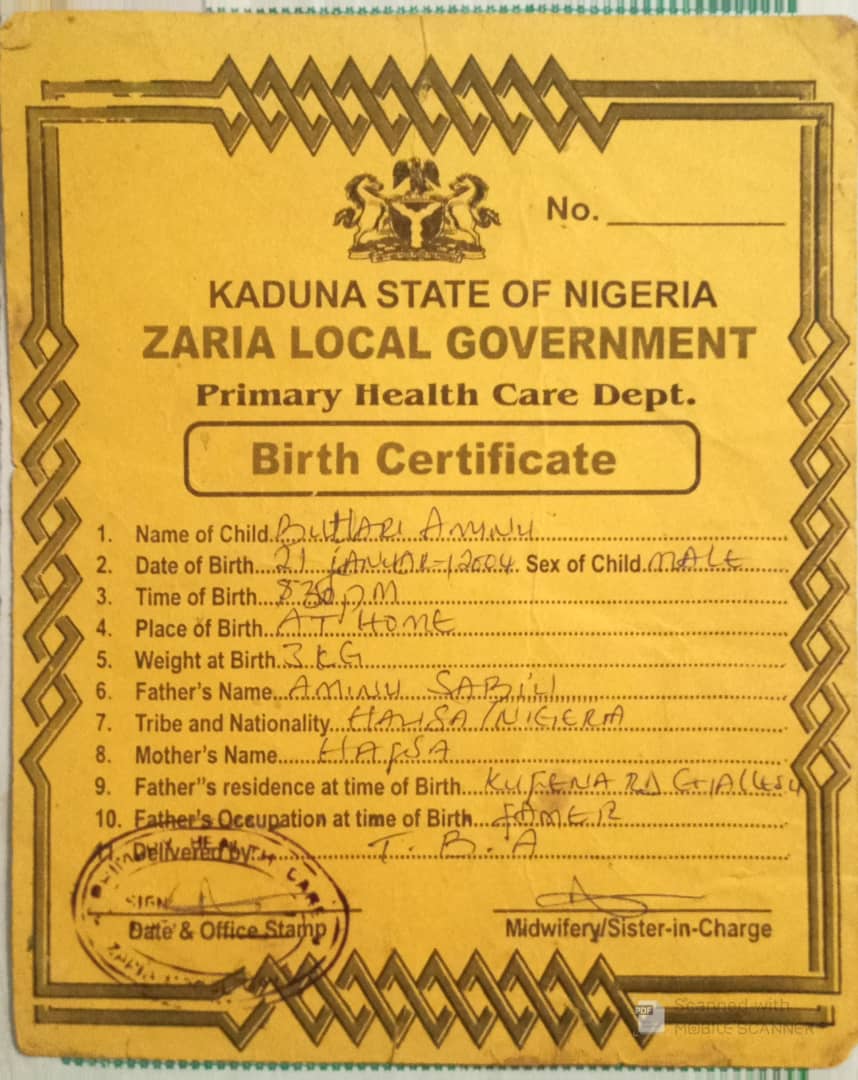 No.
KADUNA STATE OF NIGERIA
ZARIA LOCAL GOVERNMENT
Primary Health Care Dept.
Birth Certificate
1. Name of Child BUHARI AMINU
2. Date of Birth 21 JANUAR-/2004 Sex of Child MALE
3. Time of Birth 830PM
4. Place of Birth AT HOME
5. Weight at Birth 3KG
6. Father's Name AMINU SABIU
7. Tribe and Nationality HAUSA/NIGERIA
8. Mother's Name HAFSA
9. Father"s residence at time of Birth KUFENA RD
10. Father's Occupation at time of Birth FAMER
11. Delivered by: T.B.A
PRIMARY HEALTH CARE
SIGN
Date & Office Stamp Midwifery/Sister-in-Charge
ZARIA
PDF Scanned with
MOBILE SCANNER